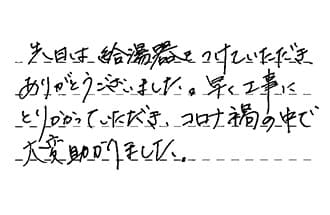 先日は給湯器をつけていただき
ありがとうございました。早く工事に
とりかかっていただき、コロナ禍の中で
大変助かりました。